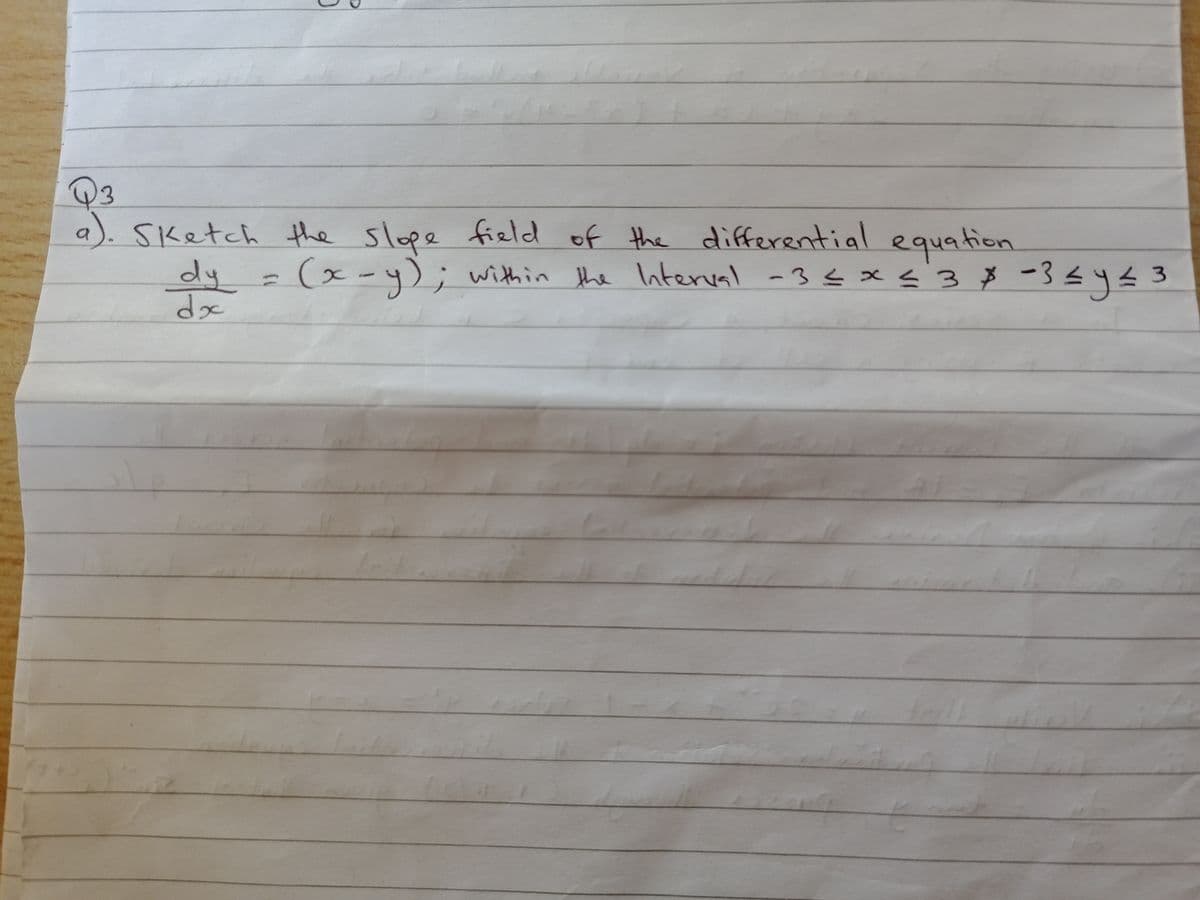 Q3
a). Sketch the slope field of the differential equation
dy/dx = (x - y); within the Interval -3 ≤ x ≤ 3 & -3 ≤ y ≤ 3